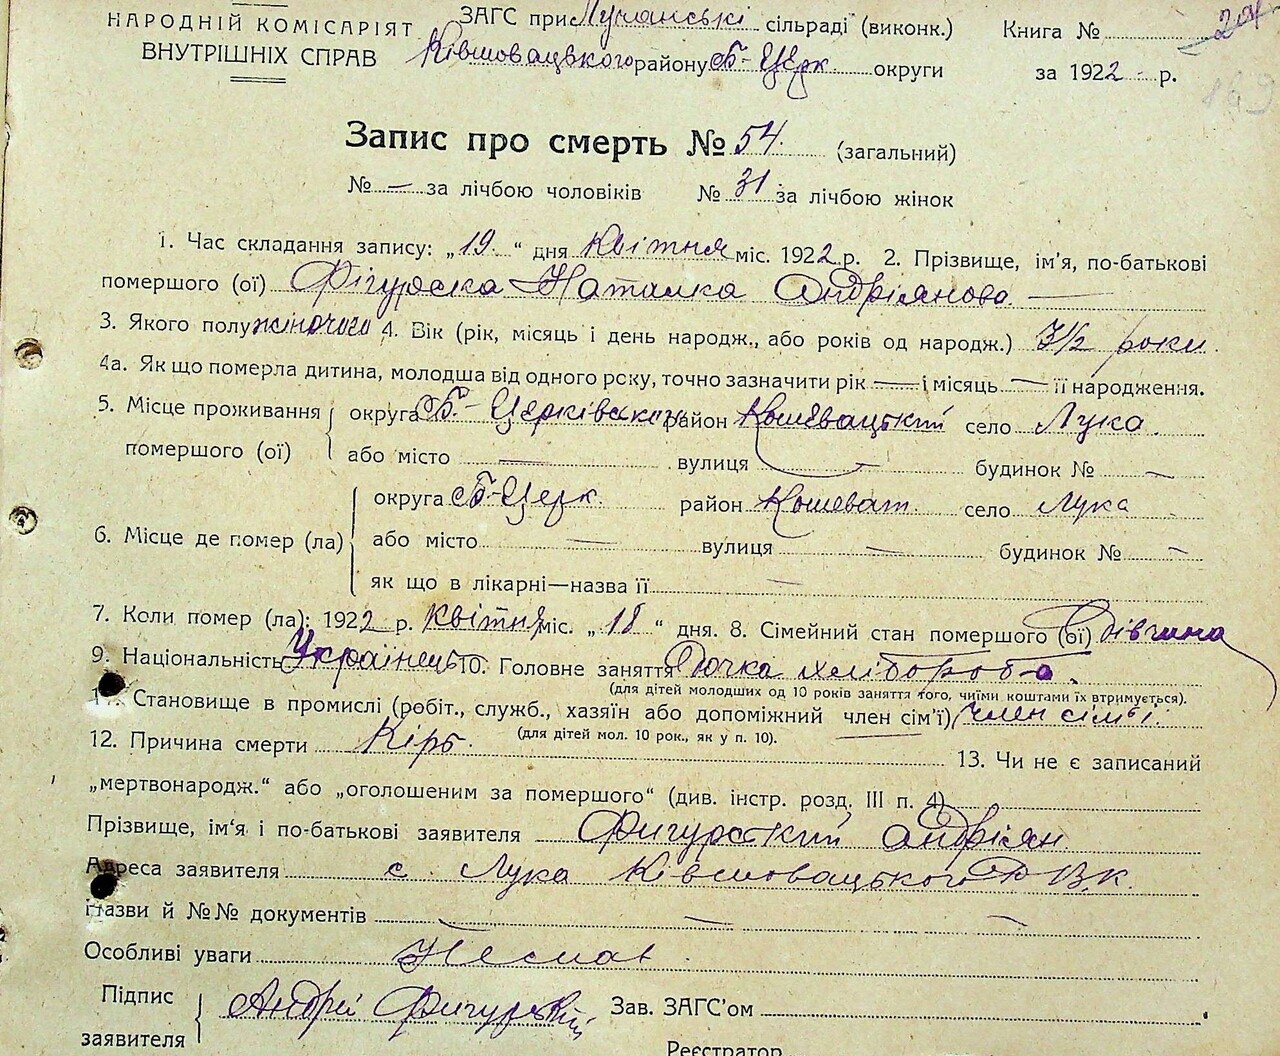 НАРОДНІЙ КОМІСАРІЯТ
ВНУТРІШНІХ СПРАВ
ЗАГС при Лучанські сільраді (виконк.)
Ківшовацького району Б-Церк. округи
Книга №
за 1922 р.
169
Запис про смерть № 54. (загальний)
№ — за лічбою чоловіків № 31 за лічбою жінок
1. Час складання запису: „19" дня Квітня міс. 1922 р. 2. Прізвище, ім'я, по-батькові
померлого (ої) Фігурска Наталка Андріянова —
3. Якого полу жіночого 4. Вік (рік, місяць і день народж., або років од народж.) 3½ роки.
4а. Як що померла дитина, молодша від одного року, точно зазначити рік — і місяць — її народження.
5. Місце проживання помершого (ої) округа Б-Церківського район Кошевацький село Лука.
або місто — вулиця — будинок № —
6. Місце де помер (ла) округа Б-Церк. район Кошеват. село Лука
або місто — вулиця — будинок № —
як що в лікарні—назва її —
7. Коли помер (ла): 1922 р. Квітня міс. „18" дня. 8. Сімейний стан помершого (ої) Дівчина
9. Національність Українець 10. Головне заняття Дочка хлібороба.
(для дітей молодших од 10 років заняття того, чиїми коштами їх втримується).
11. Становище в промислі (робіт., служб., хазяїн або допоміжний член сім'ї) член сімьї.
(для дітей мол. 10 рок., як у п. 10).
12. Причина смерти Кірь. 13. Чи не є записаний
„мертвонародж." або „оголошеним за помершого" (див. інстр. розд. III п. 4)
Прізвище, ім'я і по-батькові заявителя Фигурский Андріян
Адреса заявителя с. Лука Ківшовацького В.К.
Назви й №№ документів — — —
Особливі уваги Немає.
Підпис заявителя Андрій Фигурский Зав. ЗАГС'ом
Реєстратор